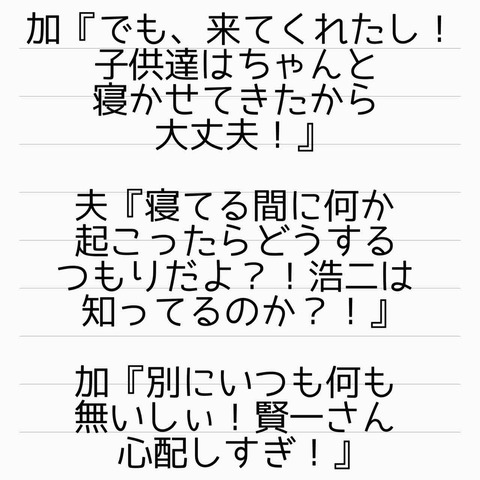 加『でも、来てくれたし！
子供達はちゃんと
寝かせてきたから
大丈夫！』
夫『寝てる間に何か
起こったらどうする
つもりだよ？！浩二は
知ってるのか？！』
加『別にいつも何も
無いしぃ！賢一さん
心配しすぎ！』